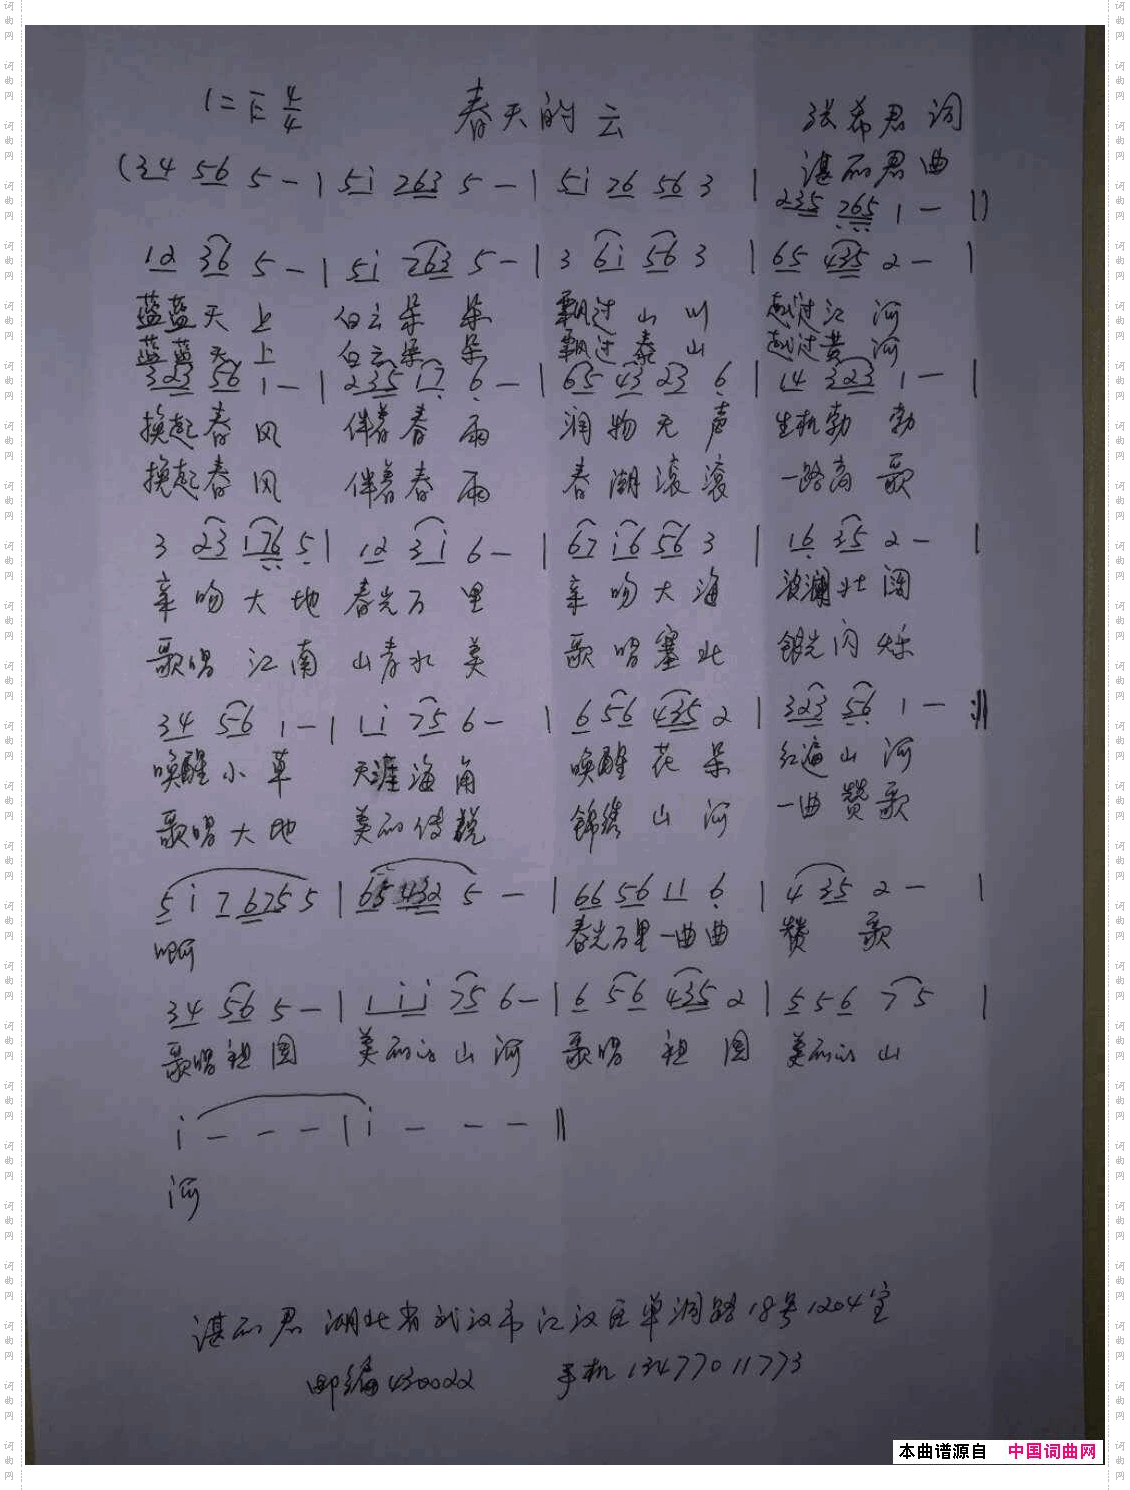 1=F 4/4 春天的云 张希君 词
(34 56 5 - | 5i 263 5 - | 5i 26 56 3 | 湛丽君 曲
235 765 1 - |)
12 36 5 - | 5i 263 5 - | 3 6i 56 3 | 65 435 2 - |
蓝蓝天上 白云朵朵 飘过山川 越过江河
蓝蓝天上 白云朵朵 飘过泰山 越过黄河
323 56 1 - | 235 17 6 - | 65 43 23 6 | 14 323 1 - |
换起春风 伴着春雨 润物无声 生机勃勃
换起春风 伴着春雨 春潮滚滚 一路高歌
3 23 176 5 | 12 3i 6 - | 67 i6 56 3 | 16 35 2 - |
亲吻大地 春光万里 亲吻大海 波澜壮阔
歌唱江南 山青水美 歌唱塞北 银光闪烁
34 56 1 - | 1i 75 6 - | 6 56 435 2 | 323 56 1 - :||
唤醒小草 天涯海角 唤醒花朵 红遍山河
歌唱大地 美丽传说 锦绣山河 一曲赞歌
5 i 7 675 5 | 65 432 5 - | 66 56 11 6 | 4 35 2 - |
啊 春光万里一曲曲 赞歌
34 56 5 - | 1 i i 75 6 - | 6 56 435 2 | 5 5 6 7 5 |
歌唱祖国 美丽的山河 歌唱祖国 美丽的山
i - - - | i - - - ||
河
湛丽君 湖北省武汉市江汉区单洞路18号1204室
邮编430022 手机13477011773
本曲谱源自 中国词曲网